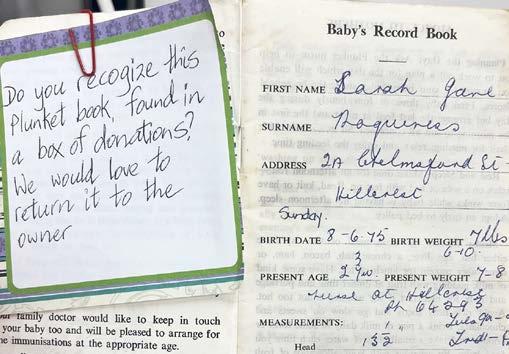 Do you recogize this
Plunket book, found in
a box of donations?
We would love to
return it to the
owner
family doctor would like to keep in touch
your baby too and will be pleased to arrange for
immunisations at the appropriate age.
Baby's Record Book
FIRST NAME Sarah Jane
SURNAME
ADDRESS 2A Chelmsford St
Hillcrest
Sunday.
BIRTH DATE 8-6-75 BIRTH WEIGHT 7lbs
6-10.
PRESENT AGE PRESENT WEIGHT 7-8
nurse at Hillcrest
Ph 64393
MEASUREMENTS:
Head